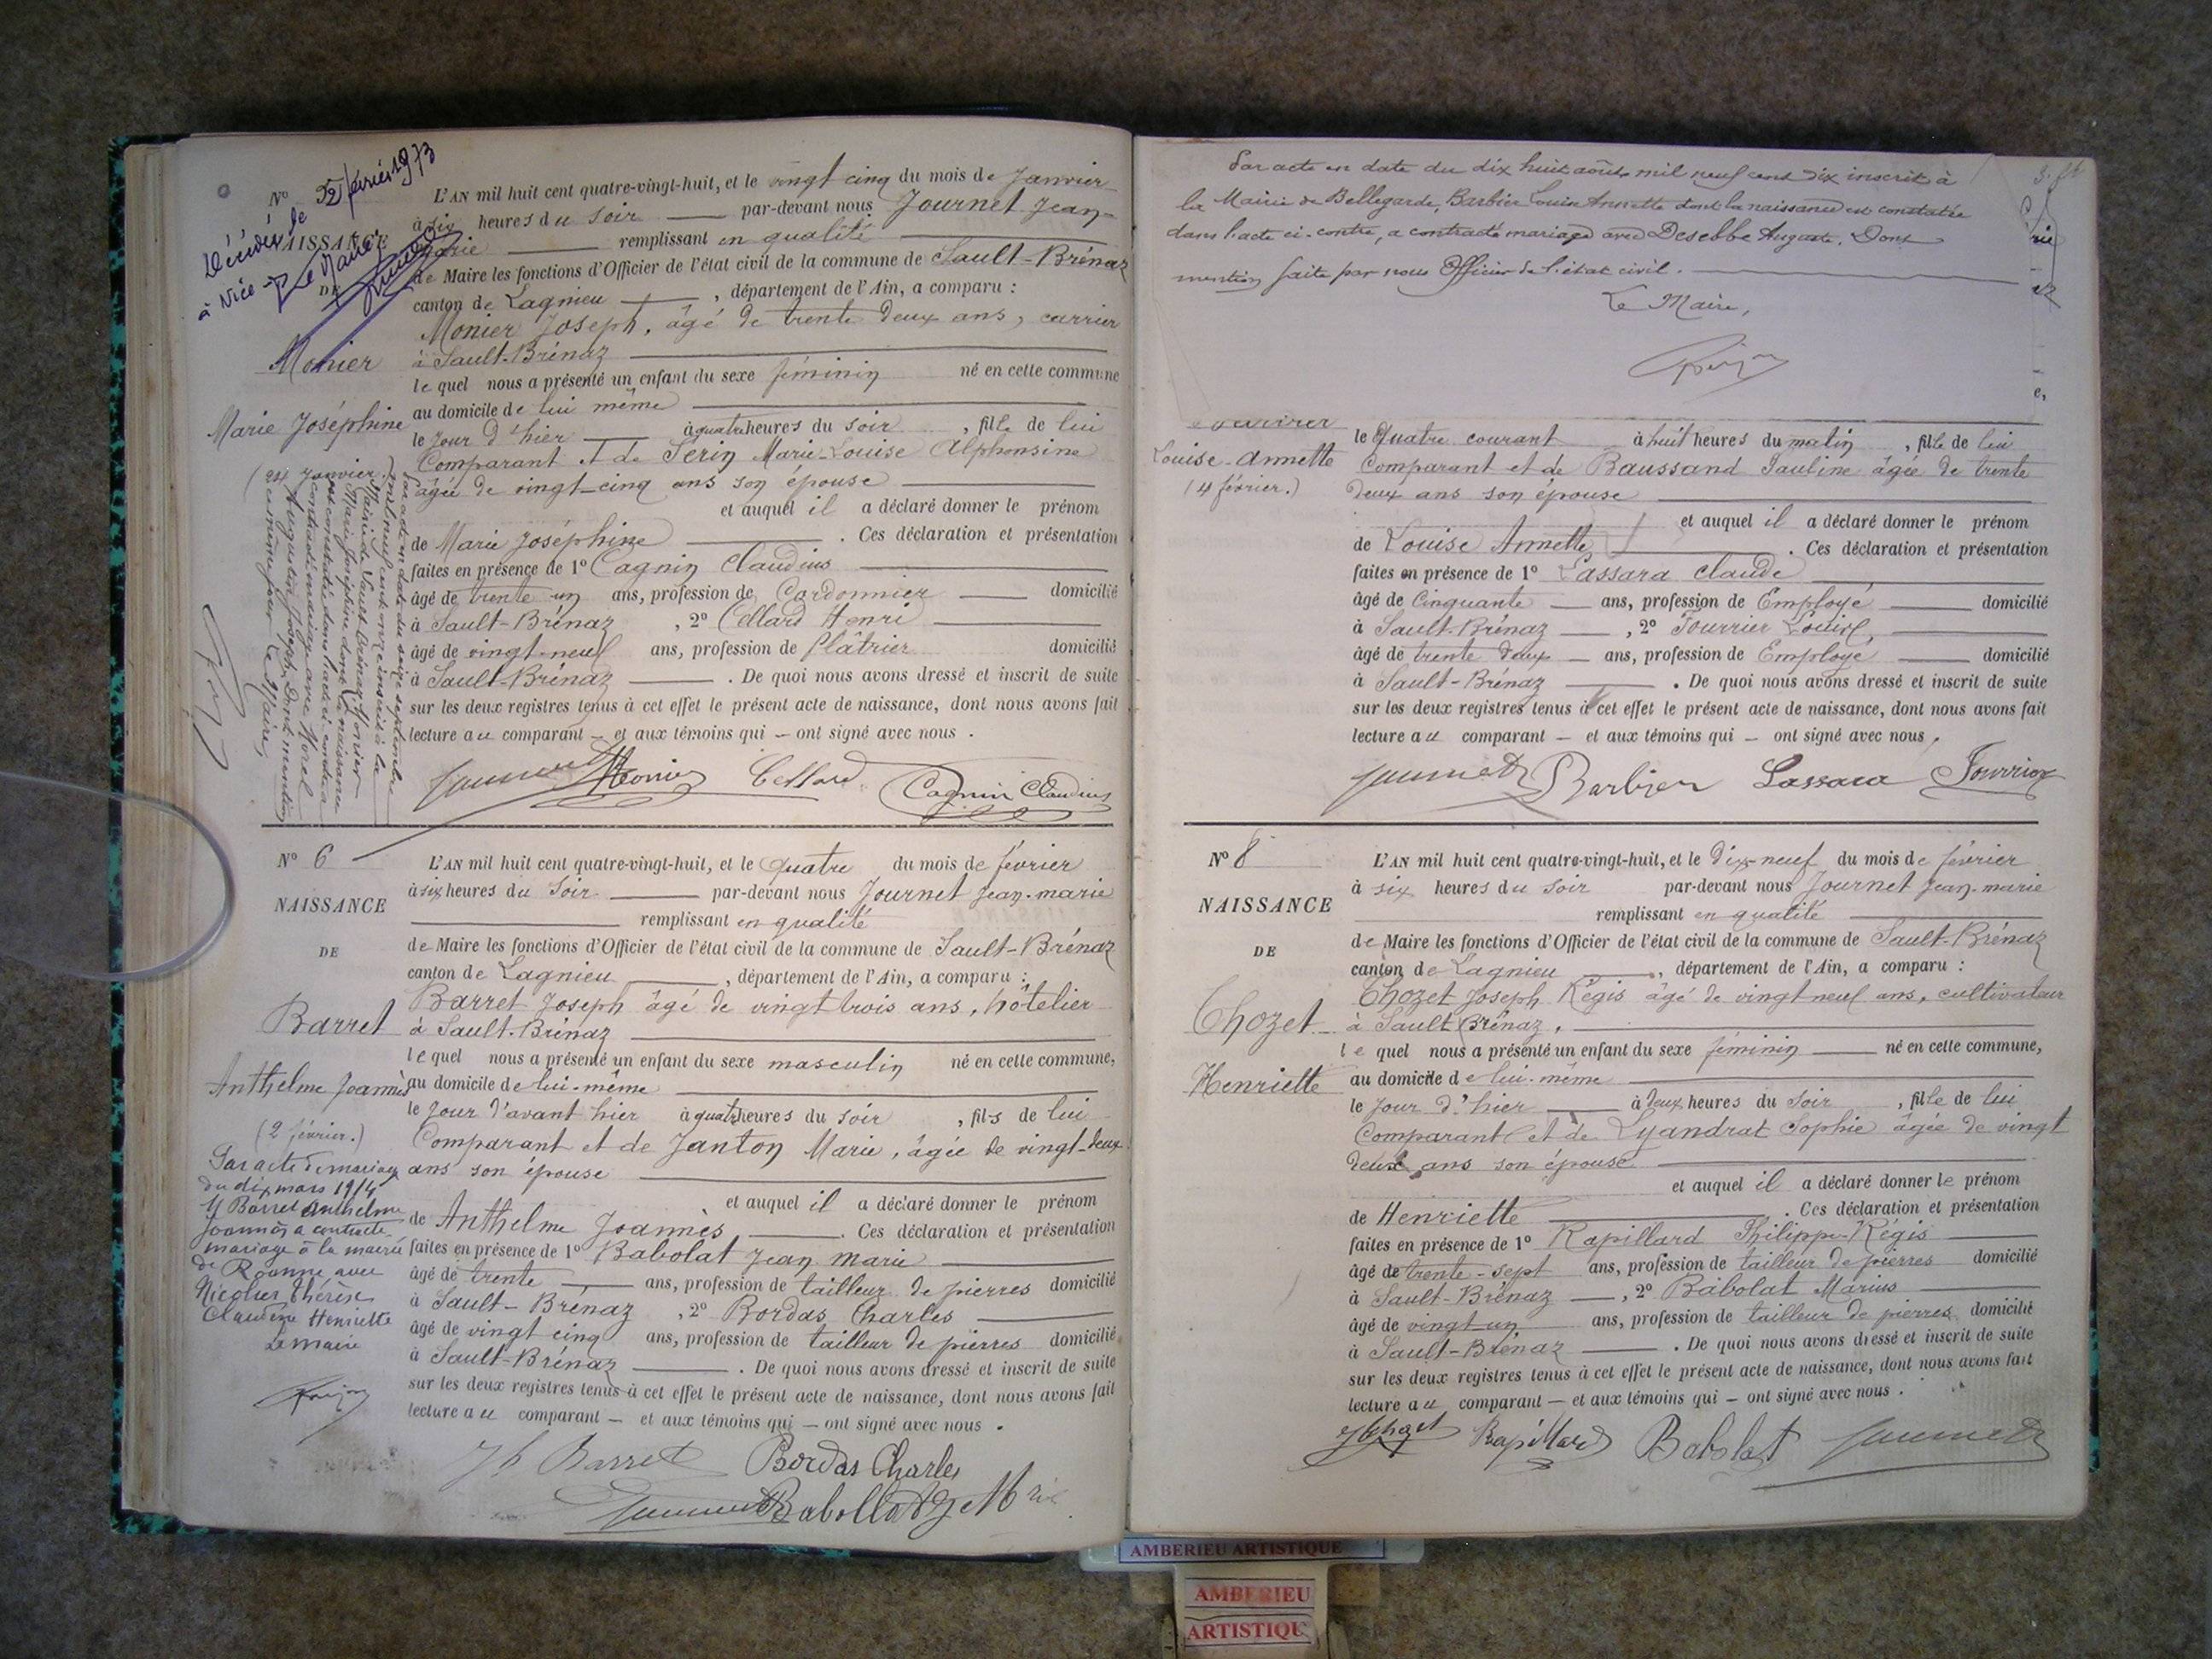 Nº 5
NAISSANCE
DE
Décédée le 2 février 1973
à Nice
Le Maire
Monier
Marie Joséphine
(24 Janvier.)
Par acte en date du seize septembre
mil neuf cent onze inscrit à la
Mairie de Sault-Brénaz, Monier
Marie Joséphine dont la naissance
est constatée dans l'acte ci-contre a
contracté mariage avec Morel
Augustin Joseph. Dont mention
Le Maire,
L'AN mil huit cent quatre-vingt-huit, et le vingt cinq du mois de Janvier
à six heures du soir par-devant nous Journet Jean-
Marie remplissant en qualité
de Maire les fonctions d'Officier de l'état civil de la commune de Sault-Brénaz
canton de Lagnieu , département de l'Ain, a comparu :
Monier Joseph, âgé de trente deux ans, carrier
à Sault-Brénaz
lequel nous a présenté un enfant du sexe féminin né en cette commune
au domicile de lui même
le jour d'hier à quatre heures du soir , fille de lui
Comparant et de Serin Marie-Louise Alphonsine
âgée de vingt-cinq ans son épouse
et auquel il a déclaré donner le prénom
de Marie Joséphine . Ces déclaration et présentation
faites en présence de 1º Cagnin Claudius
âgé de trente un ans, profession de Cordonnier domicilié
à Sault-Brénaz , 2º Cellard Henri
âgé de vingt-neuf ans, profession de Plâtrier domicilié
à Sault-Brénaz . De quoi nous avons dressé et inscrit de suite
sur les deux registres tenus à cet effet le présent acte de naissance, dont nous avons fait
lecture au comparant — et aux témoins qui — ont signé avec nous .
Journet Monier Cellard Cagnin Claudius
Nº 6
NAISSANCE
DE
Barret
Anthelme Joannès
(2 février.)
Par acte de mariage
du dix mars 1914
M Barret Anthelme
Joannès a contracté
mariage à la mairie
de Roanne avec
Thérèse
Claudine Henriette
Le maire
L'AN mil huit cent quatre-vingt-huit, et le quatre du mois de février
à six heures du soir par-devant nous Journet Jean-marie
remplissant en qualité
de Maire les fonctions d'Officier de l'état civil de la commune de Sault-Brénaz
canton de Lagnieu , département de l'Ain, a comparu :
Barret Joseph âgé de vingt trois ans, hôtelier
à Sault-Brénaz
lequel nous a présenté un enfant du sexe masculin né en cette commune,
au domicile de lui-même
le jour d'avant hier à quatre heures du soir , fils de lui
Comparant et de Janton Marie, âgée de vingt-deux
ans son épouse
et auquel il a déclaré donner le prénom
de Anthelme Joannès . Ces déclaration et présentation
faites en présence de 1º Babolat Jean marie
âgé de trente ans, profession de tailleur de pierres domicilié
à Sault-Brénaz , 2º Bordas Charles
âgé de vingt cinq ans, profession de tailleur de pierres domicilié
à Sault-Brénaz . De quoi nous avons dressé et inscrit de suite
sur les deux registres tenus à cet effet le présent acte de naissance, dont nous avons fait
lecture au comparant — et aux témoins qui — ont signé avec nous .
Jh Barret Bordas Charles
Journet
Par acte en date du dix huit août mil neuf cent dix inscrit à
la Mairie de Bellegarde, Barbier Louise Annette dont la naissance est constatée
dans l'acte ci-contre, a contracté mariage avec Desebbe Auguste. Dont
mention faite par nous Officier de l'état civil.
Le Maire,
Louise-Annette
(4 février.)
le quatre courant à huit heures du matin , fille de lui
Comparant et de Baussand Pauline âgée de trente
deux ans son épouse
et auquel il a déclaré donner le prénom
de Louise Annette . Ces déclaration et présentation
faites en présence de 1º Lassara Claude
âgé de Cinquante ans, profession de Employé domicilié
à Sault-Brénaz , 2º Fourrier Louis,
âgé de trente deux ans, profession de Employé domicilié
à Sault-Brénaz . De quoi nous avons dressé et inscrit de suite
sur les deux registres tenus à cet effet le présent acte de naissance, dont nous avons fait
lecture au comparant — et aux témoins qui — ont signé avec nous .
Journet Barbier Lassara Fourrier
Nº 8
NAISSANCE
DE
Chozet
Henriette
L'AN mil huit cent quatre-vingt-huit, et le dix-neuf du mois de février
à six heures du soir par-devant nous Journet Jean-marie
remplissant en qualité
de Maire les fonctions d'Officier de l'état civil de la commune de Sault-Brénaz
canton de Lagnieu , département de l'Ain, a comparu :
Chozet Joseph Régis âgé de vingt neuf ans, cultivateur
à Sault Brénaz,
lequel nous a présenté un enfant du sexe féminin né en cette commune,
au domicile de lui-même
le jour d'hier à deux heures du soir , fille de lui
Comparant et de Lyandrat Sophie âgée de vingt
deux ans son épouse
et auquel il a déclaré donner le prénom
de Henriette . Ces déclaration et présentation
faites en présence de 1º Rapillard Philippe-Régis
âgé de trente-sept ans, profession de tailleur de pierres domicilié
à Sault-Brénaz , 2º Babolat Marius
âgé de vingt-un ans, profession de tailleur de pierres domicilié
à Sault-Brénaz . De quoi nous avons dressé et inscrit de suite
sur les deux registres tenus à cet effet le présent acte de naissance, dont nous avons fait
lecture au comparant — et aux témoins qui — ont signé avec nous .
Rapillard Babolat Journet
AMBERIEU ARTISTIQUE
AMBERIEU
ARTISTIQUE